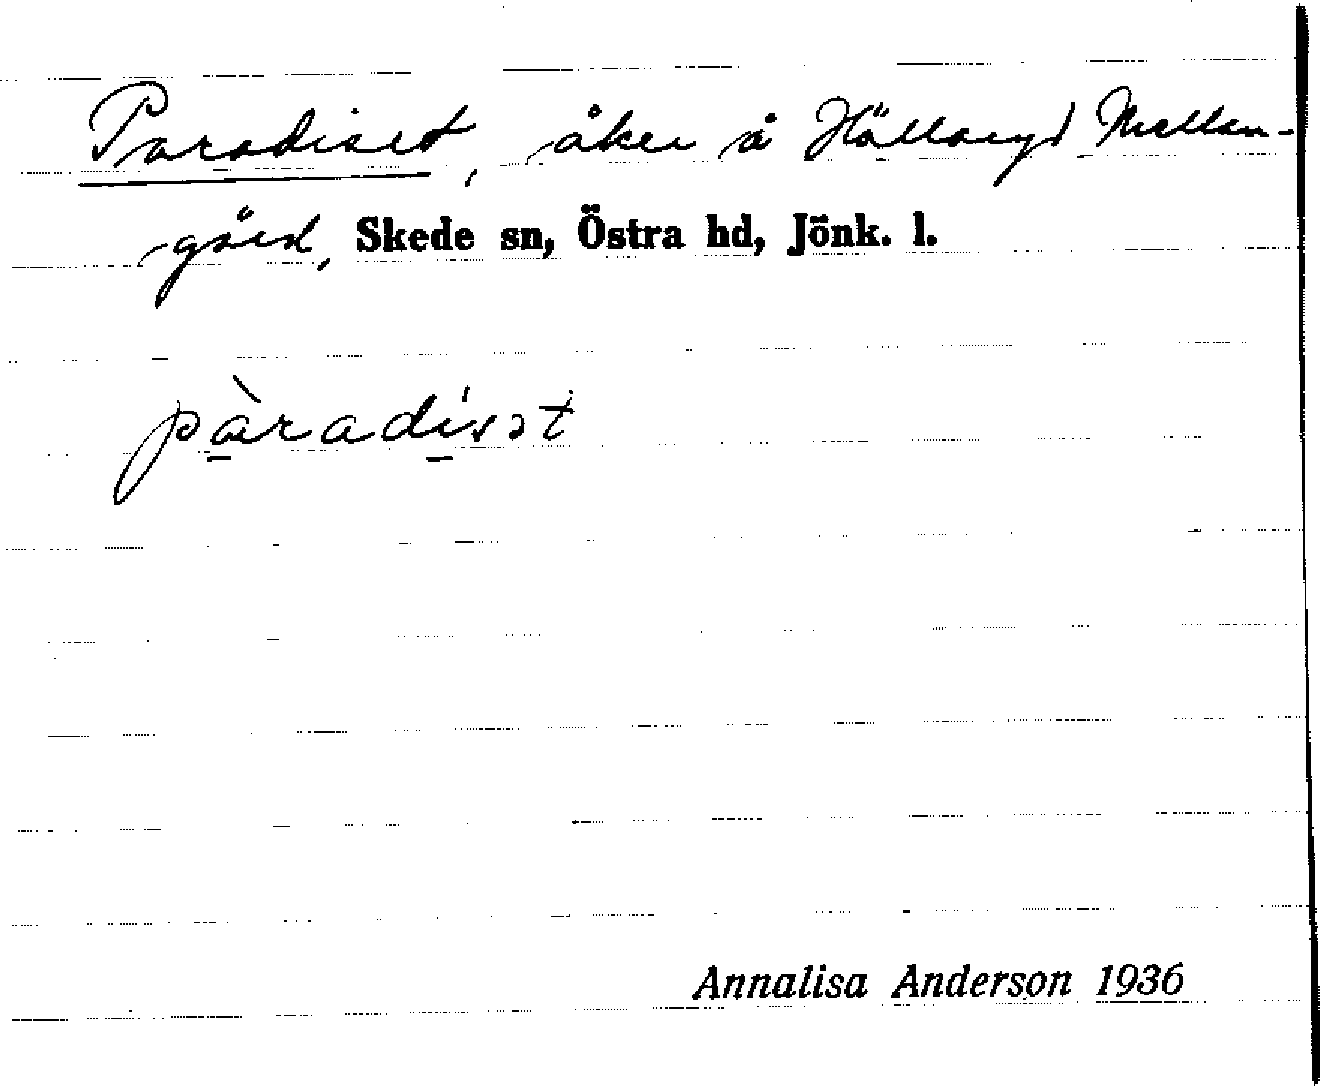 Paradiset, åker å Hällaryd Mellan-
gård, Skede sn, Östra hd, Jönk. l.
pàradísət
Annalisa Anderson 1936